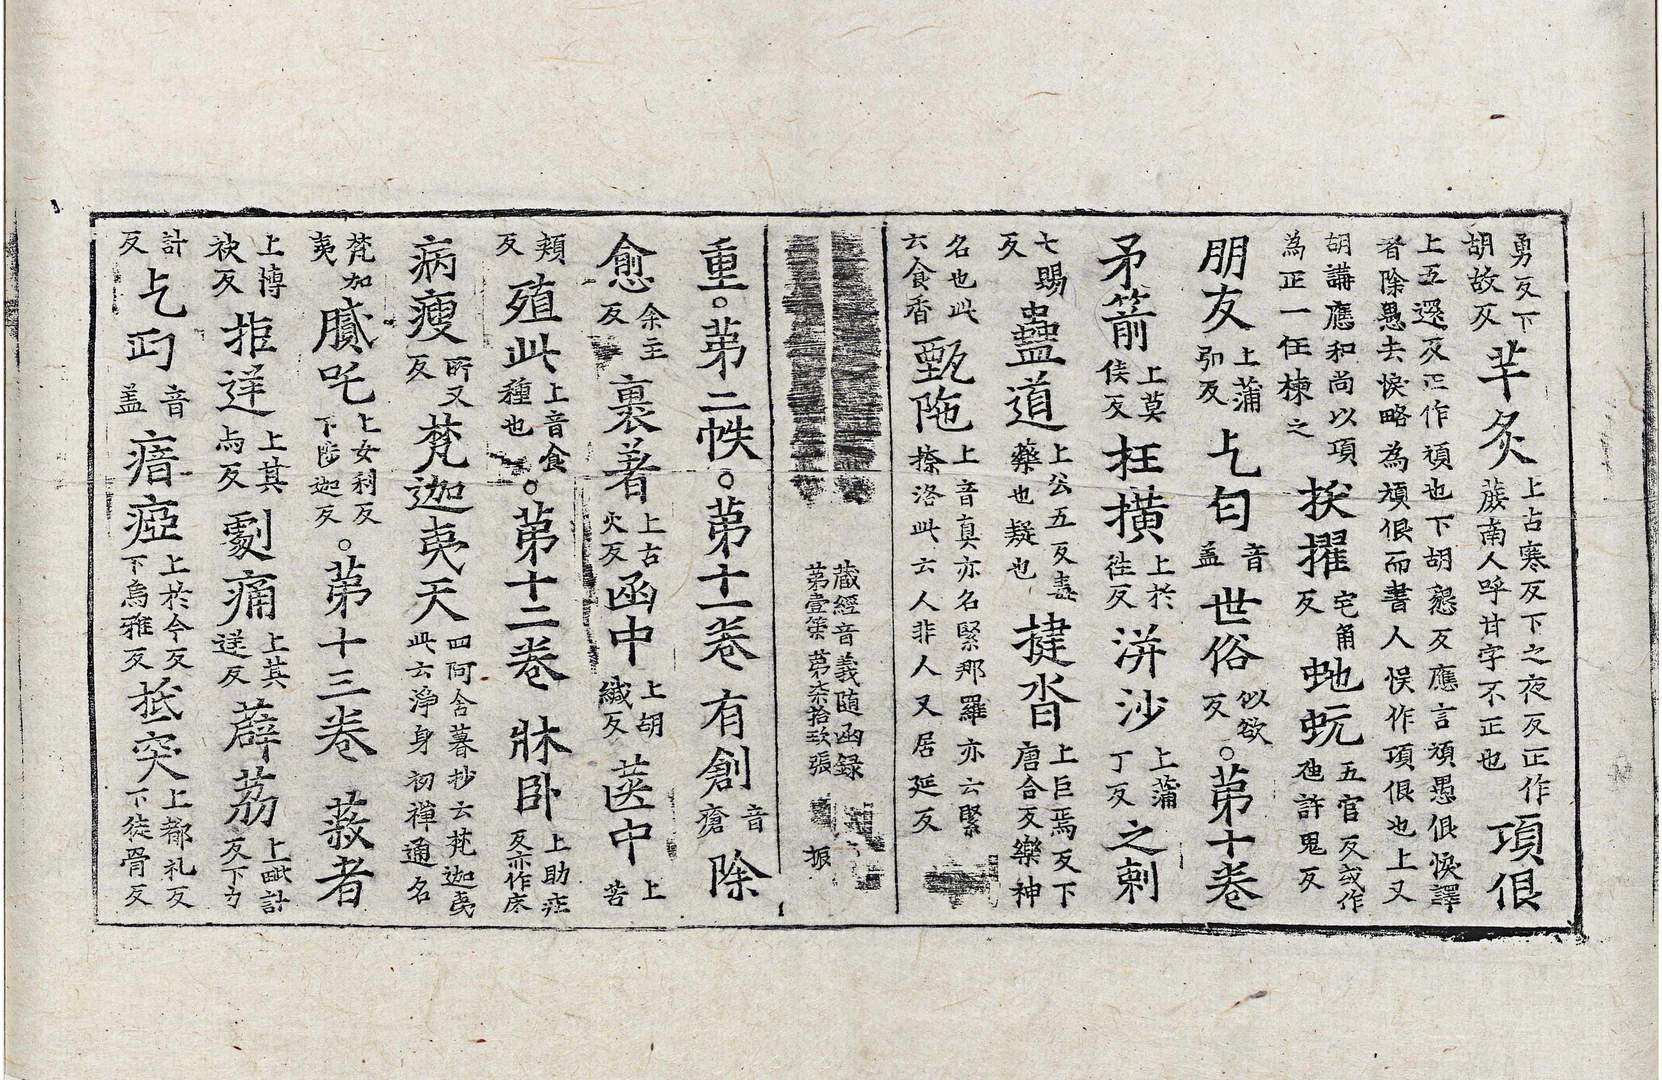 勇反下胡故反芉炙上占寒反下之夜反正作蔟南人呼甘字不正也項佷
上五還反正作頑也下胡懇反應言頑愚佷悷譯者除愚去悷略為頑佷而書人悞作項佷也上又
胡講應和尚以項為正一任棟之挨擢宅角反虵蚖五官反或作虺許鬼反
朋友上蒲弘反上匂音盖世俗似欲反。第十卷
矛箭上莫侯反枉横上於徃反洴沙上蒲丁反之剌
七賜反蠱道上公五反毒藥也疑也揵沓上巨焉反下唐合反樂神
名也此六食香甄陁上音真亦名緊那羅亦云緊捺洛此云人非人又居延反
藏經音義随函録第壹第 第柒拾玖張 振
重。第二帙。第十一卷 有創音瘡除
愈余主反裹著上古火反函中上胡纎反箧中上苦
頰反殖此上音食種也。第十二卷 牀卧上助庄反亦作床
病瘦所又反梵迦夷天四阿含暮抄云梵迦夷此云淨身初禪通名
梵加夷膩吒上女利反下陟迦反。第十三卷 䔍者
上博袂反拒逆上其㞐反劇痛上其逆反薜荔上毗計反下力
計反上丐音盖瘖瘂上於今反下烏雅反抵突上都礼反下徒骨反